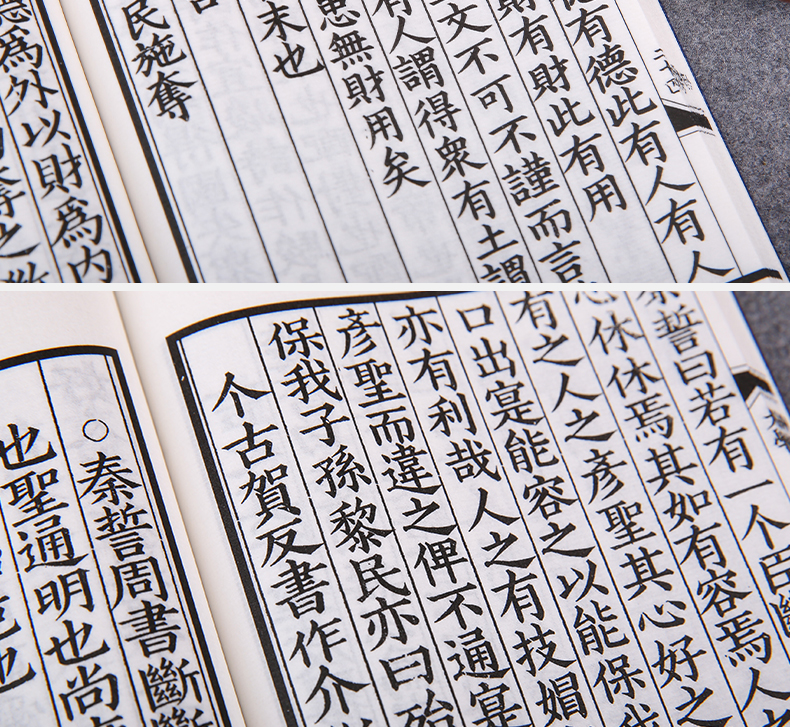 有德此有人有人
有財此有用
文不可不謹而言
有人謂得眾有土謂
患無財用矣
末也
民施奪
為外以財為內
奪之
秦誓曰若有一个臣斷
心休休焉其如有容焉人
有之人之彥聖其心好之
口出寔能容之以能保我
亦有利哉人之有技媢
彥聖而違之俾不通寔
保我子孫黎民亦曰殆
个古賀反書作介
○秦誓周書斷斷
也聖通明也尚